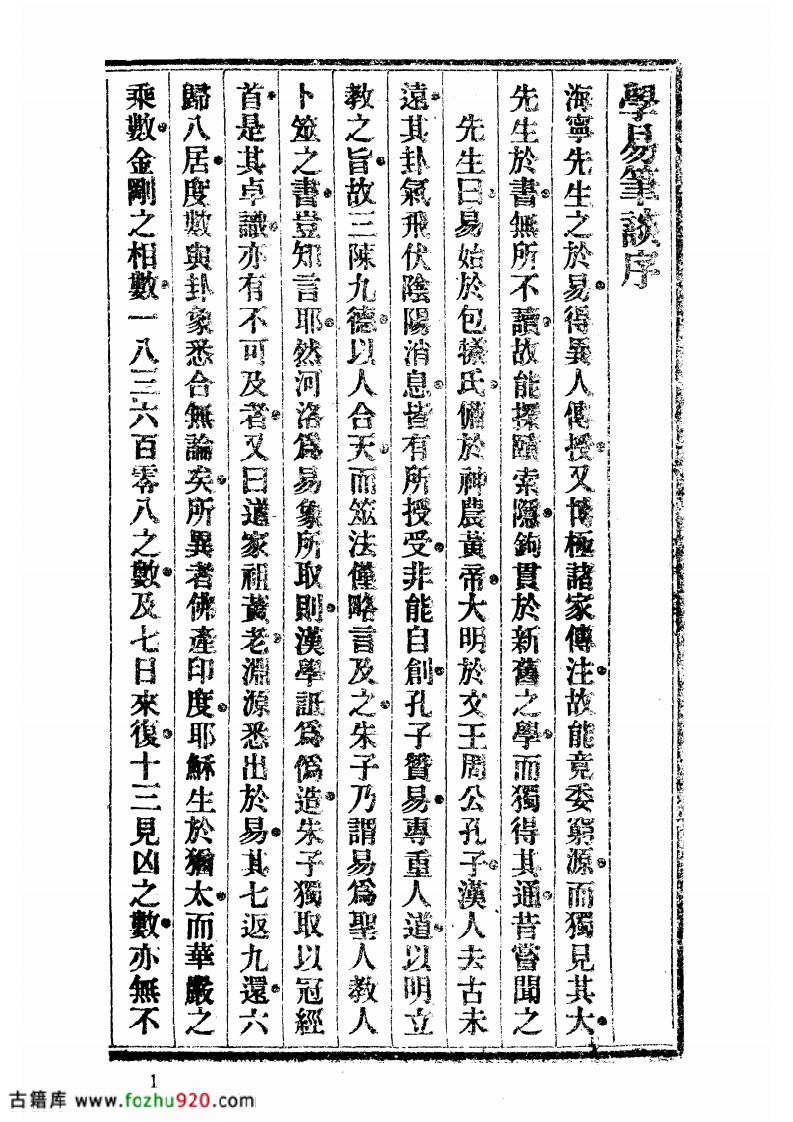 學易筆談序
海寧先生之於易得異人傳授又博極諸家傳注故能竟委窮源而獨見其大
先生於書無所不讀故能探賾索隱鉤貫於新舊之學而獨得其通昔嘗聞之
先生曰易始於包犧氏備於神農黃帝大明於文王周公孔子漢人去古未
遠其卦氣飛伏陰陽消息皆有所授受非能自創孔子贊易專重人道以明立
教之旨故三陳九德以人合天而筮法僅略言及之朱子乃謂易爲聖人教人
卜筮之書豈知言耶然河洛爲易象所取則漢學詆爲僞造朱子獨取以冠經
首是其卓識亦有不可及者又曰道家祖黃老淵源悉出於易其七返九還六
歸八居度數與卦象悉合無論矣所異者佛產印度耶穌生於猶太而華嚴之
乘數金剛之相數一八三六百零八之數及七日來復十三見凶之數亦無不
1
古籍库 www.fozhu920.com